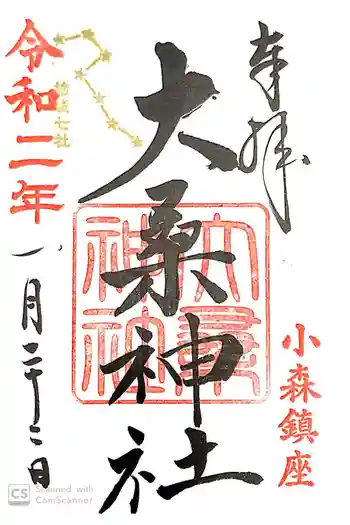 奉拝
小森鎮座
大桑神社
大桑神社
令和二年
一月二十二日
Scanned with
CamScanner
CS